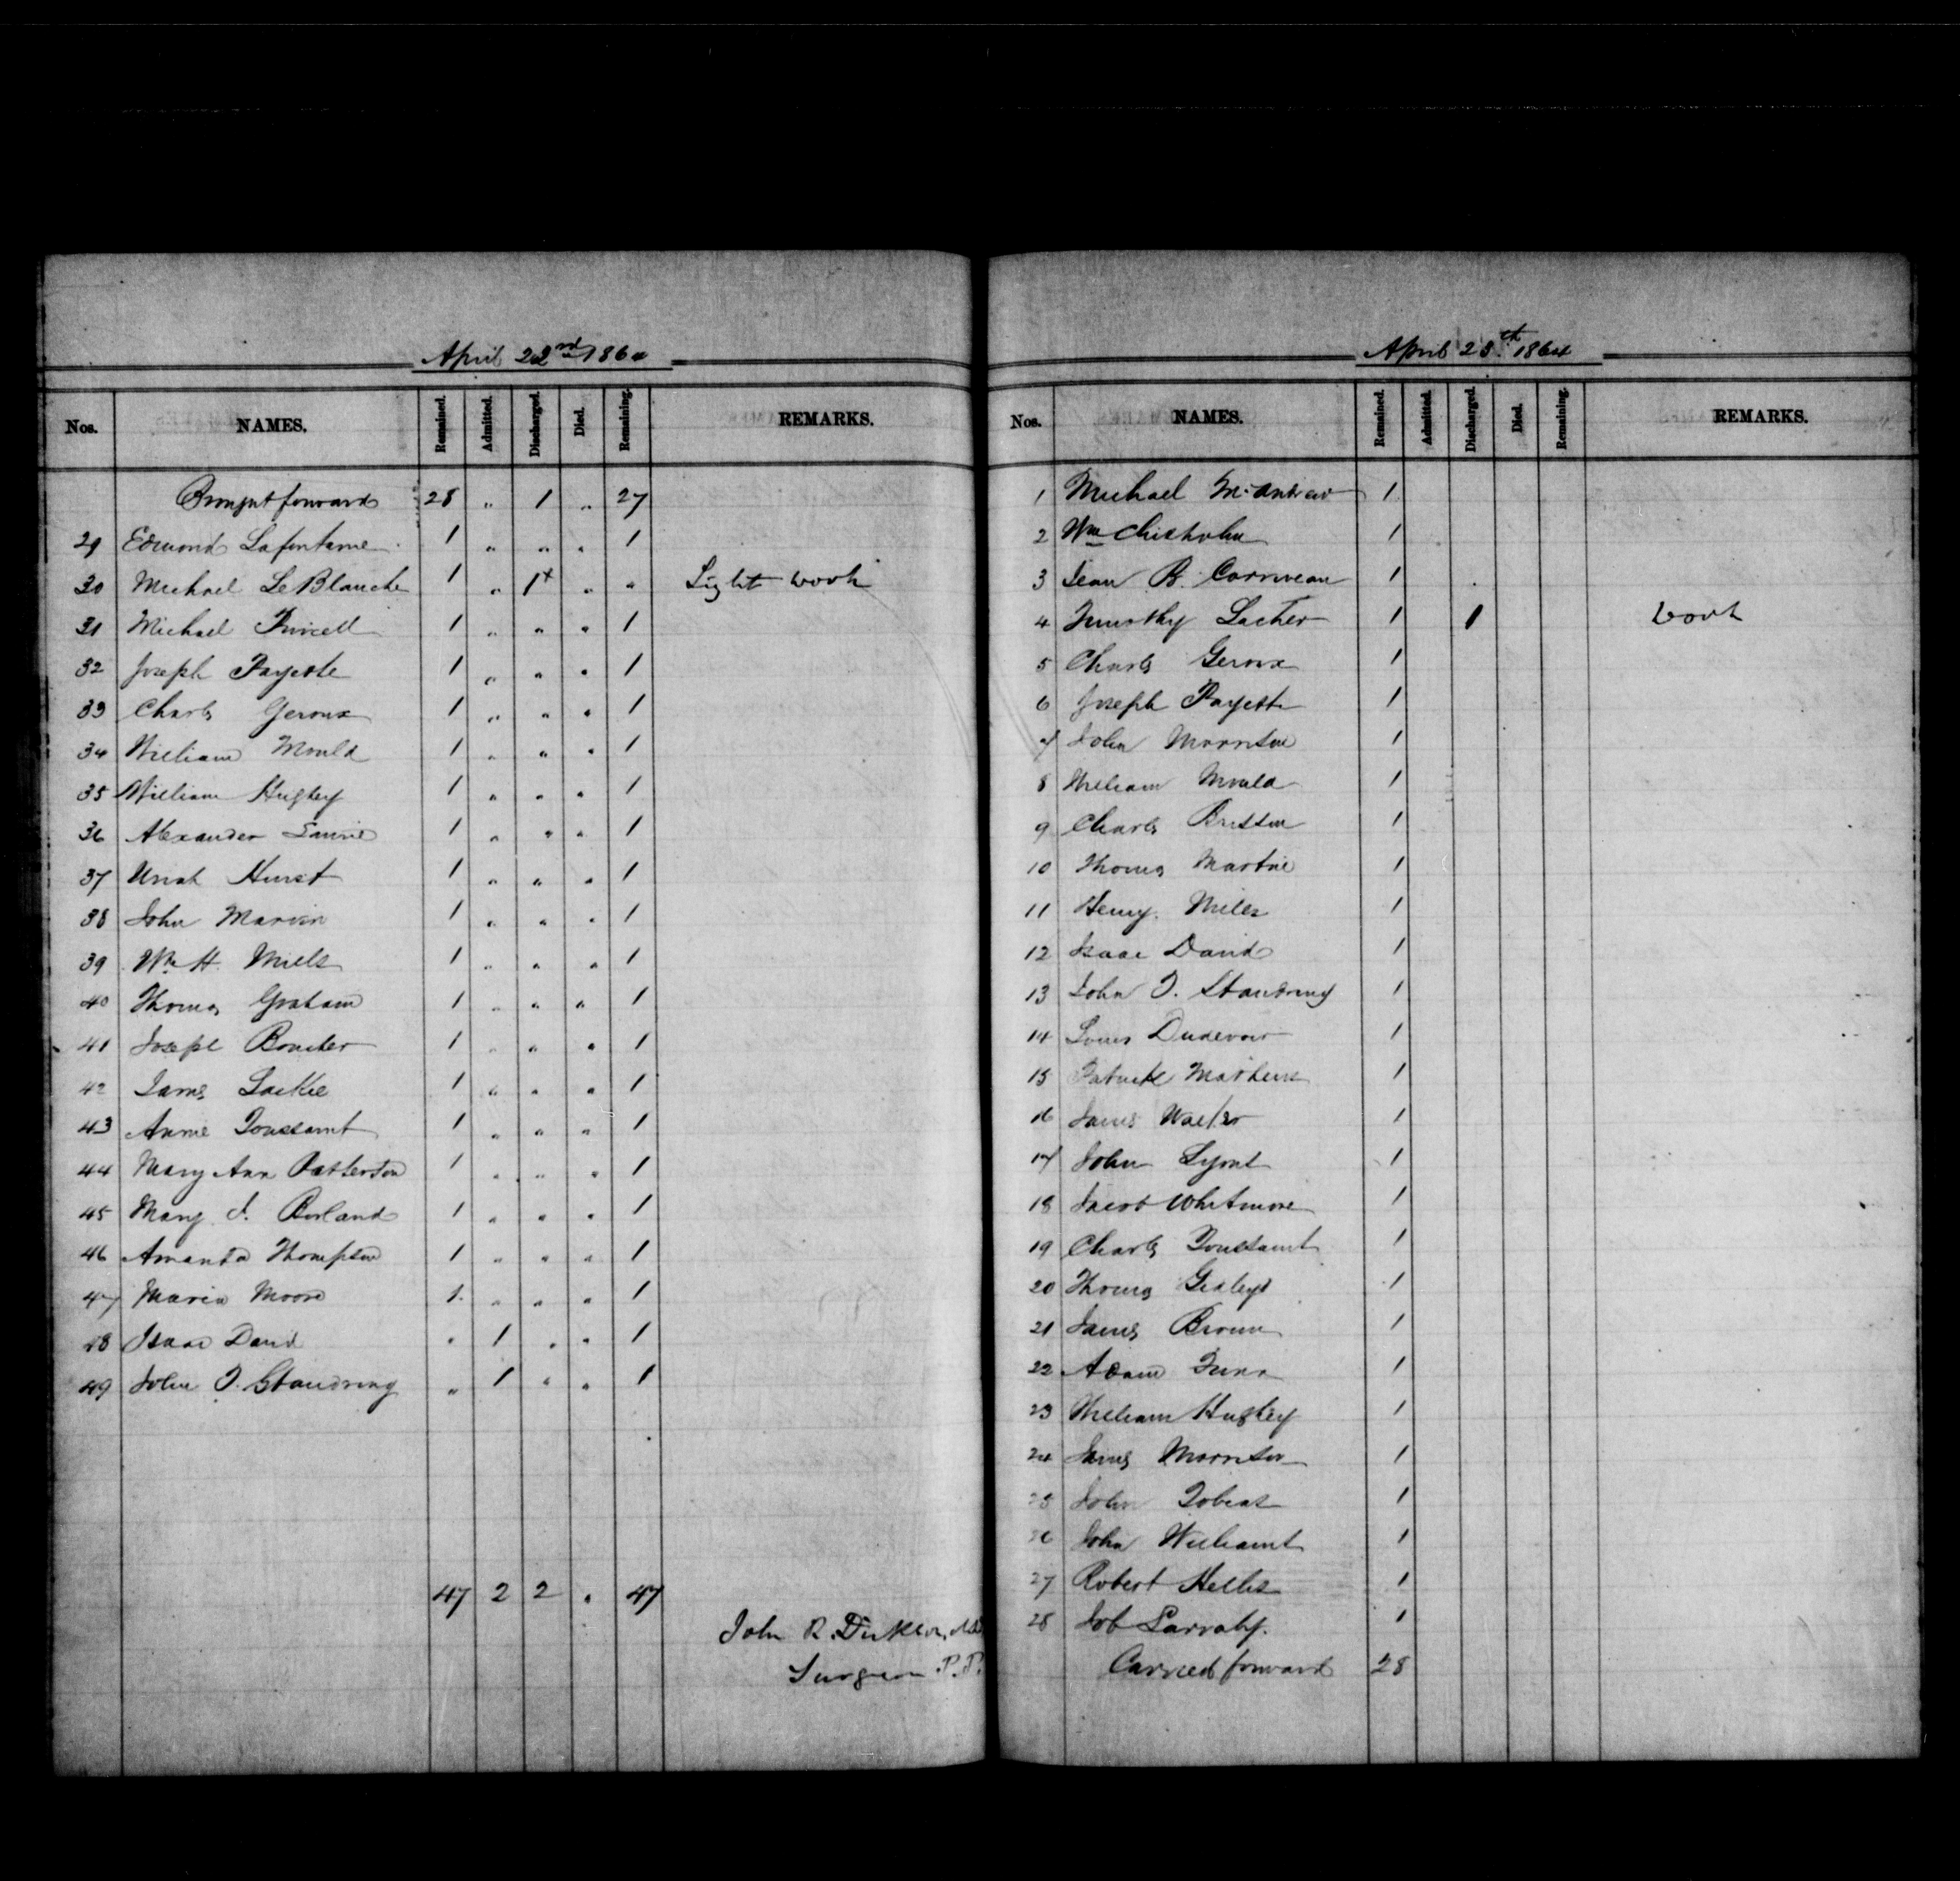 April 22nd 1864
Nos. NAMES. Remained. Admitted. Discharged. Died. Remaining. REMARKS.
Brought forward 28 " 1 " 27
29 Edmond Lafontaine 1 " " " 1
30 Michael LeBlanche 1 " 1+ " " Light work
31 Michael Purcell 1 " " " 1
32 Joseph Payette 1 " " " 1
33 Charls Geroux 1 " " " 1
34 William Mould 1 " " " 1
35 William Hughey 1 " " " 1
36 Alexander Laurie 1 " " " 1
37 Uriah Hurst 1 " " " 1
38 John Marvin 1 " " " 1
39 Wm H. Mills 1 " " " 1
40 Thomas Graham 1 " " " 1
41 Joseph Boucher 1 " " " 1
42 James Lackie 1 " " " 1
43 Annie Toussaint 1 " " " 1
44 Mary Ann Patterson 1 " " " 1
45 Mary J. Borland 1 " " " 1
46 Amanda Thompson 1 " " " 1
47 Maria Moore 1 " " " 1
48 Isaac David " 1 " " 1
49 John T. Standring " 1 " " 1
47 2 2 " 47
John R. Dickson, M.D.
Surgeon P.P.
April 25th 1864
Nos. NAMES. Remained. Admitted. Discharged. Died. Remaining. REMARKS.
1 Michael McAndrew 1
2 Wm Chisholm 1
3 Jean B. Corriveau 1
4 Timothy Locher 1 1 work
5 Charls Geroux 1
6 Joseph Payette 1
7 John Morrison 1
8 William Mould 1
9 Charls Brisson 1
10 Thomas Martin 1
11 Henry Miles 1
12 Isaac David 1
13 John T. Standring 1
14 Louis Dudevoir 1
15 Patrick Mathews 1
16 James Walker 1
17 John Lyons 1
18 Jacob Whitmore 1
19 Charls Toussaint 1
20 Thomas 1
21 James Brown 1
22 Adam Funk 1
23 William Hughey 1
24 James Morrison 1
25 John Tobias 1
26 John Williams 1
27 Robert Hellis 1
28 Job Larraby. 1
Carried forward 28